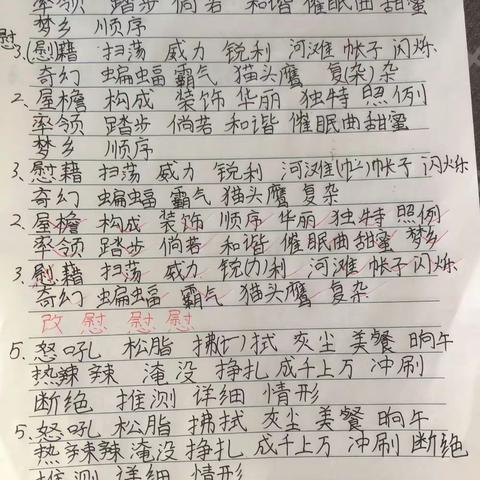 率领 踏步 倘若 和谐 催眠曲 甜蜜
梦乡 顺序
慰
3.慰藉 扫荡 威力 锐利 河滩 帐子 闪烁
奇幻 蝙蝠 霸气 猫头鹰 复(杂)杂
2、屋檐 构成 装饰 华丽 独特 照例
率领 踏步 倘若 和谐 催眠曲 甜蜜
梦乡 顺序
3.慰藉 扫荡 威力 锐利 河滩(巾)帐子 闪烁
奇幻 蝙蝠 霸气 猫头鹰 复杂
2、屋檐 构成 装饰 顺序 华丽 独特 照例
率领 踏步 倘若 和谐 催眠曲 甜蜜 梦乡
3.慰藉 扫荡 威力 锐(力)利 河滩 帐子 闪烁
奇幻 蝙蝠 霸气 猫头鹰 复杂
改 慰 慰 慰
5.怒吼 松脂 拂(扌)拭 灰尘 美餐 晌午
热辣辣 淹没 挣扎 成千上万 冲刷
断绝 推测 详细 情形
5.怒吼 松脂 拂拭 灰尘 美餐 晌午
热辣辣 淹没 挣扎 成千上万 冲刷 断绝
推测 详细 情形